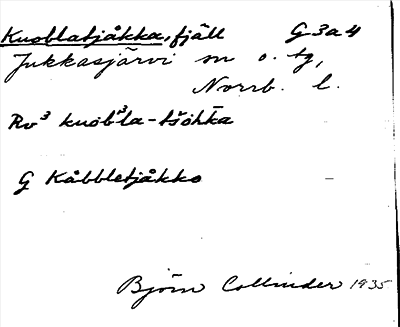 Kuoblatjåkka, fjäll G 3a4
Jukkasjärvi sn o. tg,
Norrb. l.
Rv³ kuob³la-tšohka
G Kåbbletjåkko
Björn Collinder 1935